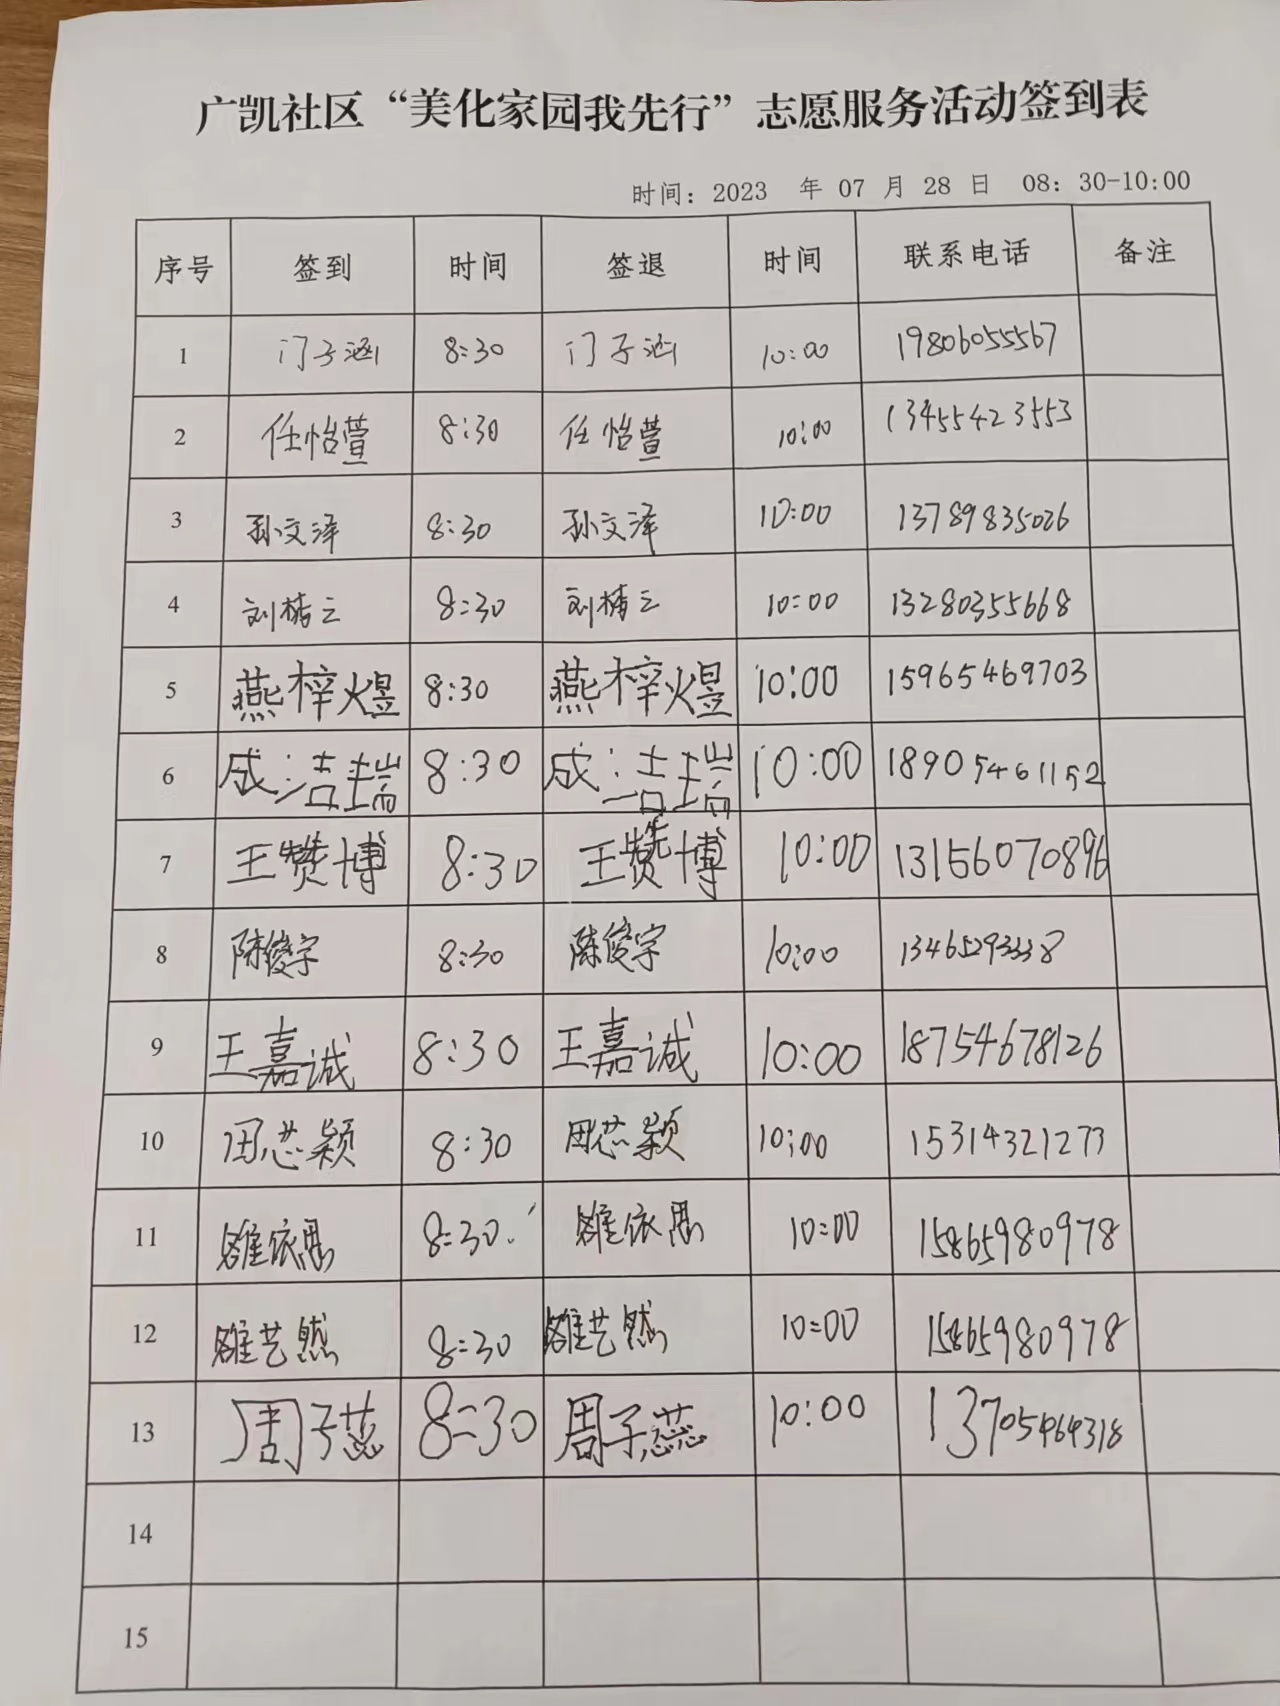 广凯社区“美化家园我先行”志愿服务活动签到表
时间：2023 年 07 月 28 日 08：30-10:00
序号 签到 时间 签退 时间 联系电话 备注
1 门子涵 8:30 门子涵 10:00 19806055567
2 任怡萱 8:30 任怡萱 10:00 13455423553
3 孙文泽 8:30 孙文泽 10:00 13789835026
4 刘楠云 8:30 刘楠云 10:00 13280355668
5 燕梓煜 8:30 燕梓煜 10:00 15965469703
6 成洁瑞 8:30 成洁瑞 10:00 18905461152
7 王赞博 8:30 王赞博 10:00 13156070896
8 陈俊宇 8:30 陈俊宇 10:00 13465293338
9 王嘉诚 8:30 王嘉诚 10:00 18754678126
10 田芯颖 8:30 田芯颖 10:00 15314321273
11 雒依恩 8:30 雒依恩 10:00 15865980978
12 雒艺然 8:30 雒艺然 10:00 15865980978
13 周子蕊 8:30 周子蕊 10:00 13705464318
14
15